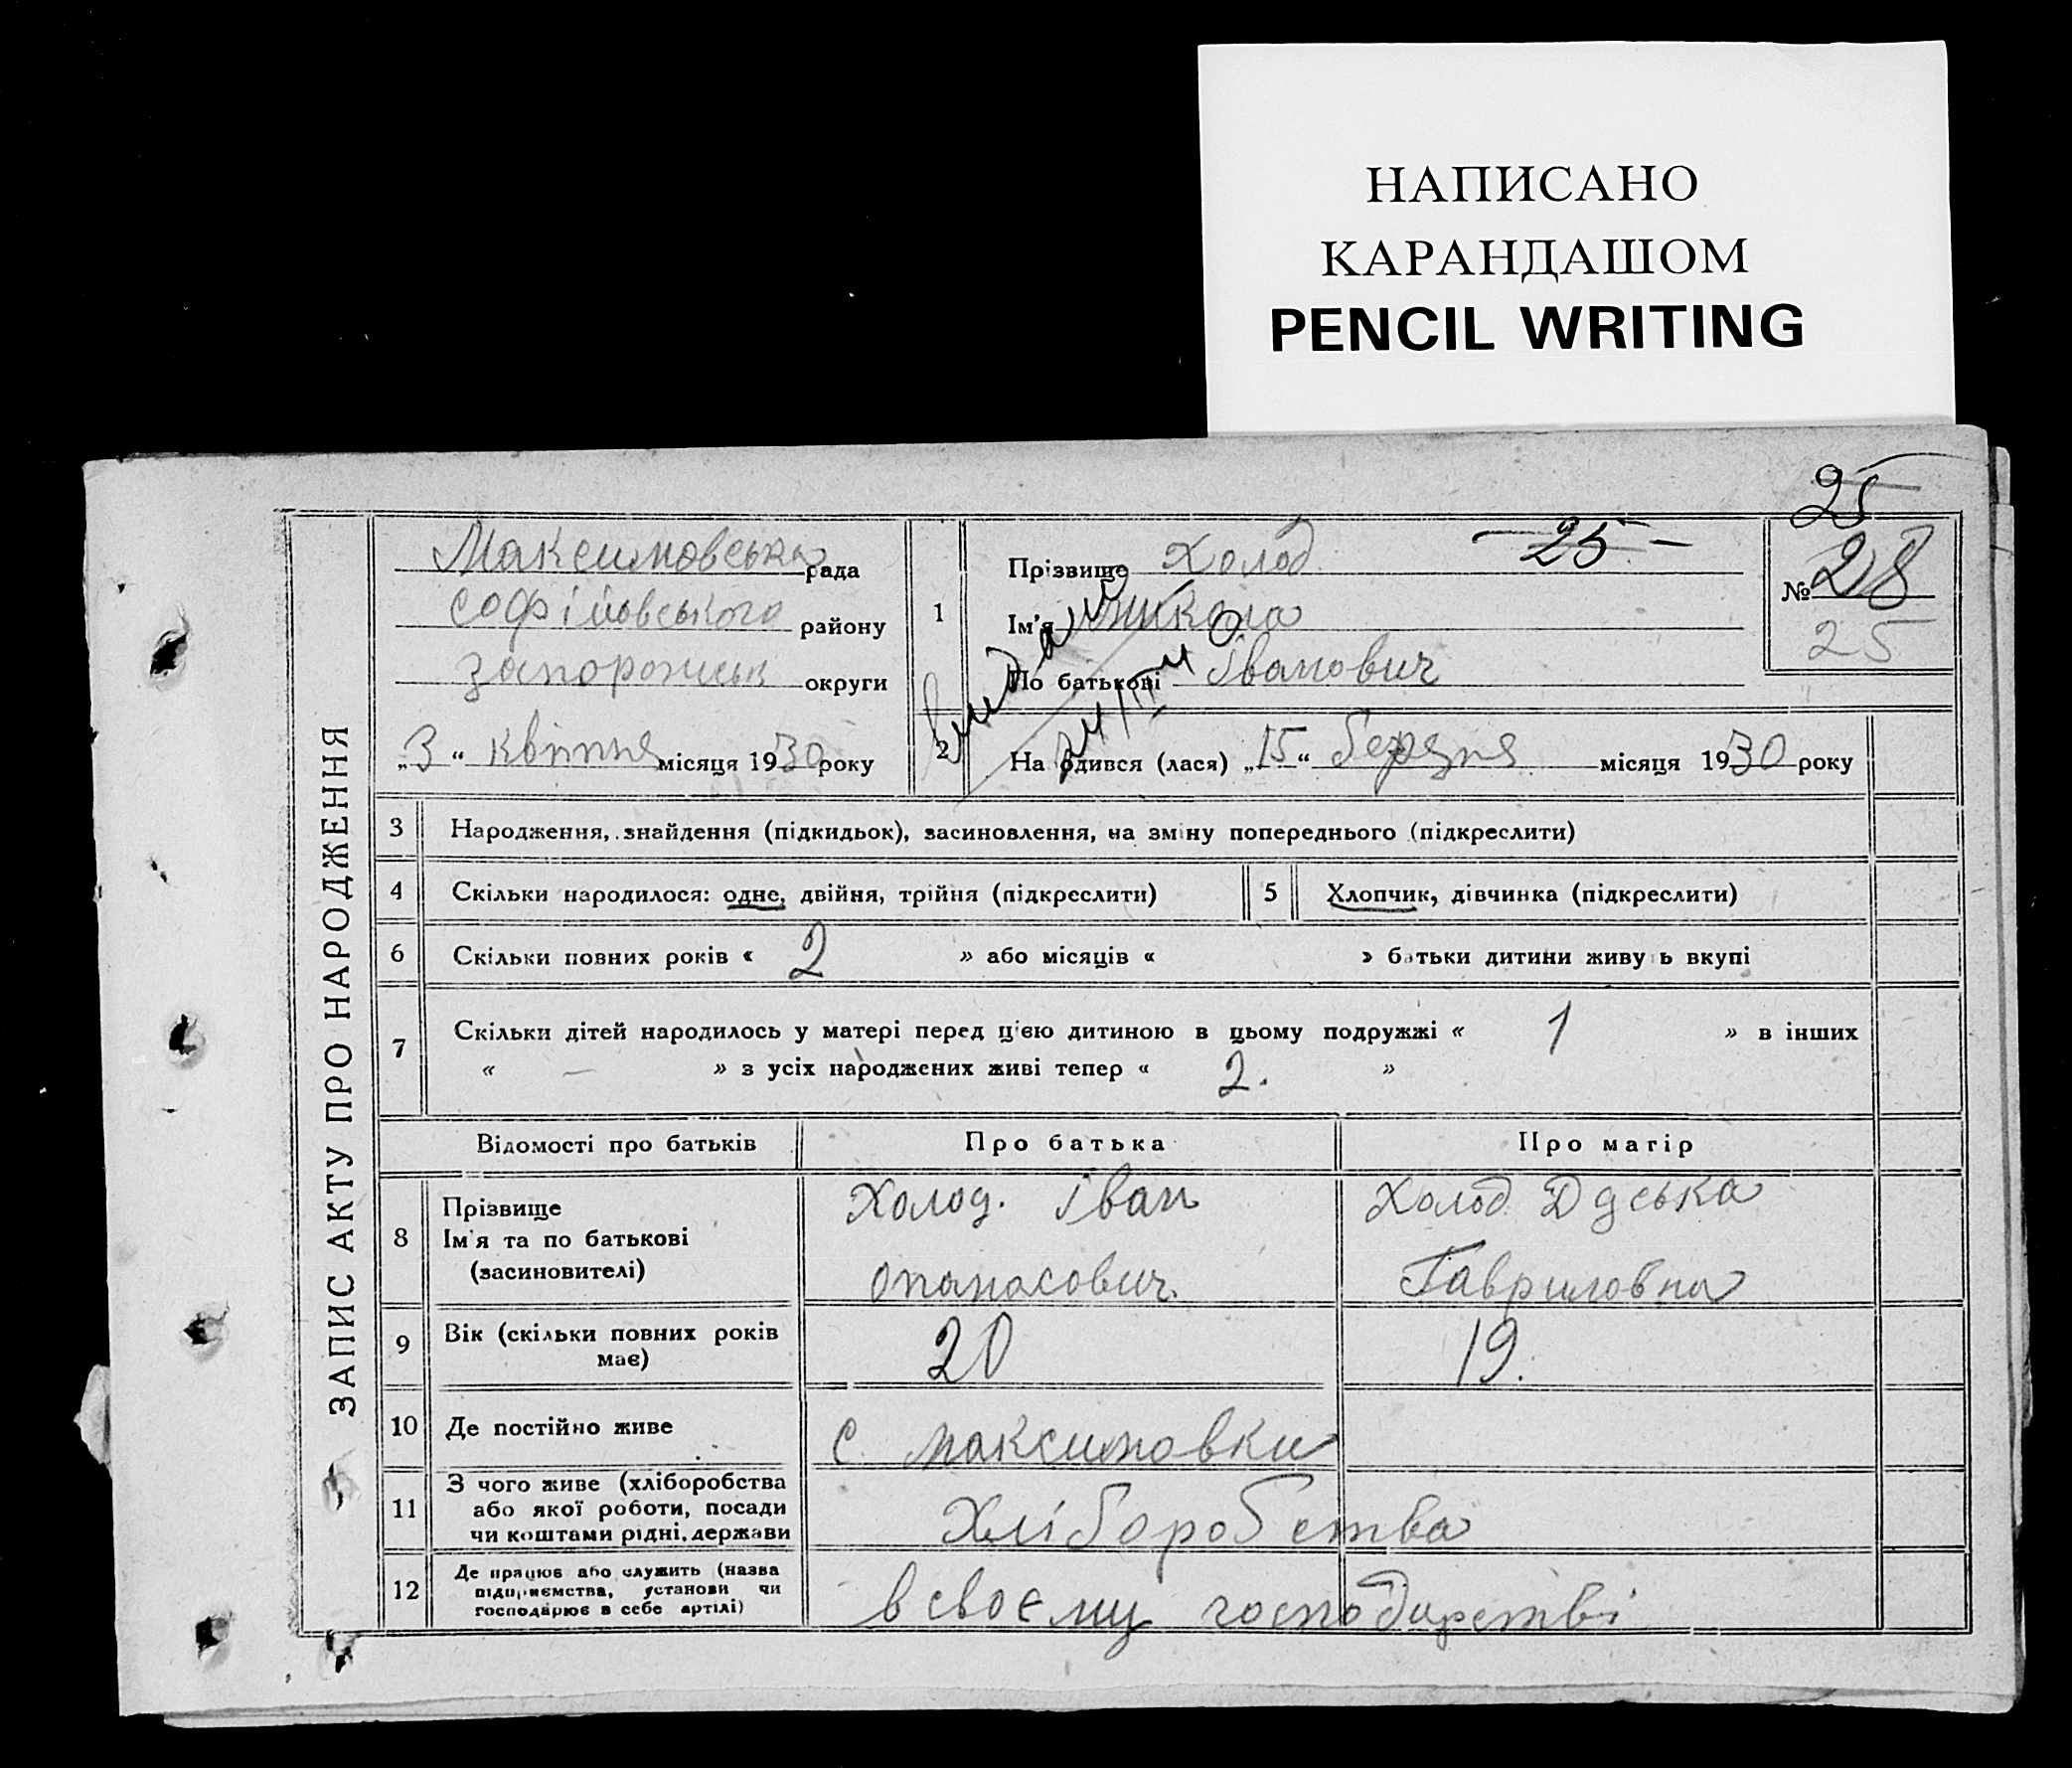 НАПИСАНО
КАРАНДАШОМ
PENCIL WRITING
25
ЗАПИС АКТУ ПРО НАРОДЖЕННЯ
Максимовська рада
Софіиовського району
Запорожськ округи
„3“ квітня місяця 1930 року
1
Прізвище Холод
- 25 -
Ім'я Микола
По батькові Іванович
№ 28
25
видани
2
На одився (лася) „15“ березня місяця 1930 року
3 Народження, знайдення (підкидьок), засиновлення, на зміну попереднього (підкреслити)
4 Скільки народилося: одне, двійня, трійня (підкреслити)
5 Хлопчик, дівчинка (підкреслити)
6 Скільки повних років « 2 » або місяців « » батьки дитини живуть вкупі
7 Скільки дітей народилось у матері перед цією дитиною в цьому подружжі « 1 » в інших
« — » з усіх народжених живі тепер « 2. »
Відомості про батьків Про батька Про матір
8 Прізвище
Ім'я та по батькові
(засиновителі)
Холод. Іван
Опанасович.
Холод
Гавриловна
9 Вік (скільки повних років
має)
20 19.
10 Де постійно живе с. Максимовки
11 З чого живе (хліборобства
або якої роботи, посади
чи коштами рідні, держави
Хліборобства
12 Де працює або служить (назва
підприємства, установи чи
господарює в себе артілі)
в своєму господарстві